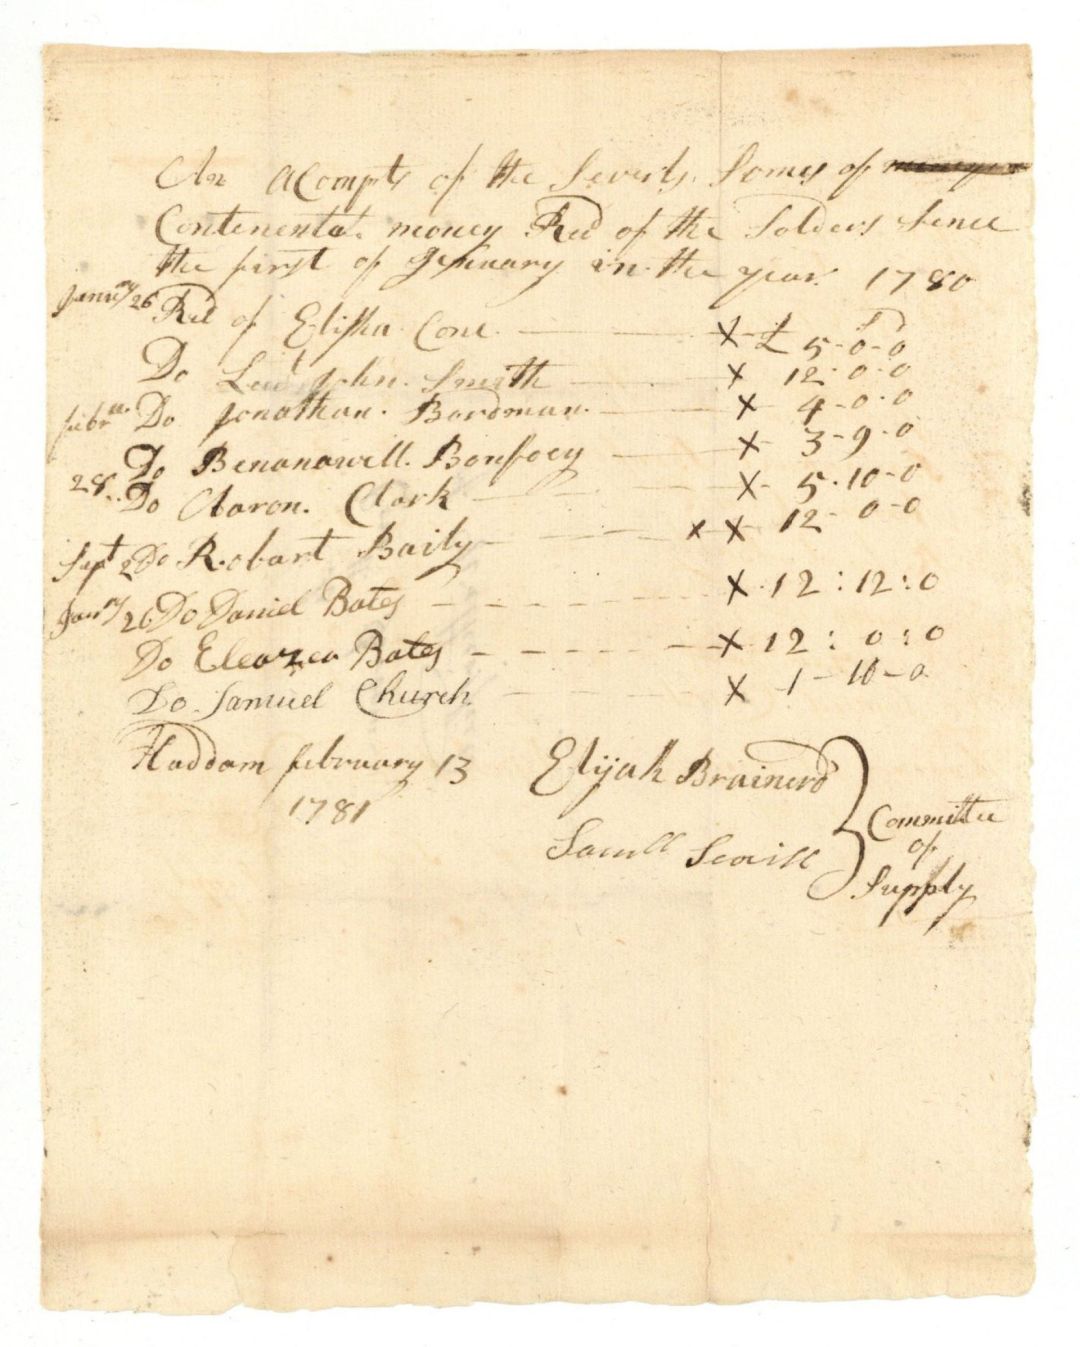 An acompts of the Severls Somes of
Contenental money Recd of the Solders Sence
the first of Jenuary in the year 1780
Janury 26 Recd of Elisha Cone X £ 5-0-0
Do Leut John Smith X 12-0-0
febra Do Jonathan Bordman X 4-0-0
Do Benanawell Bonfoey X 3-9-0
28 Do Aaron Clark X 5-10-0
Sept 2 Do Robart Baily X X 12-0-0
Janry 26 Do Daniel Bates X 12:12:0
Do Eleazer Bates X 12:0:0
Do Samuel Church X 1-10-0
Haddam february 13
1781
Elijah Brainerd
Samll Scovill
Committee
of
Supply